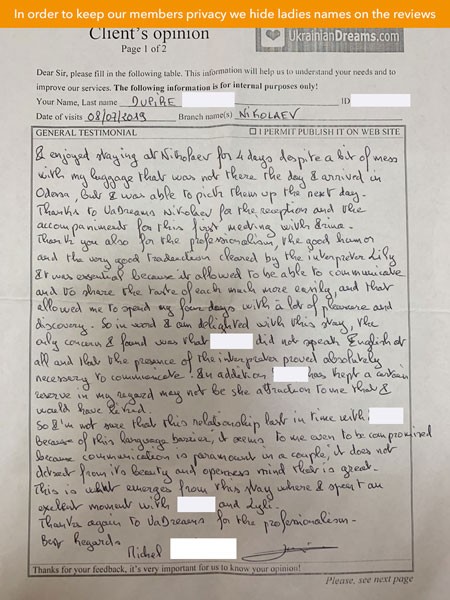 In order to keep our members privacy we hide ladies names on the reviews
Client's opinion
UkrainianDreams.com
Page 1 of 2
Dear Sir, please fill in the following table. This information will help us to understand your needs and to
improve our services. The following information is for internal purposes only!
Your Name, Last name DUPIRE ID
Date of visits 08/07/2019 Branch name(s) NIKOLAEV
GENERAL TESTIMONIAL ☐ I PERMIT PUBLISH IT ON WEB SITE
I enjoyed staying at Nikolaev for 4 days despite a bit of mess
with my luggage that was not there the day I arrived in
Odessa, but I was able to pick them up the next day.
Thanks to UaDreams Nikolaev for the reception and the
accompaniments for this first meeting with Irina.
Thank you also for the professionalism, the good humor
and the very good traduction cleared by the interpretor Lily
It was essential because it allowed to be able to communicate
and to share the taste of each much more easily, and that
allowed me to spend my four days with a lot of pleasure and
discovery. So in word I am delighted with this stay, the
only concern I found was that did not speak English at
all and that the presence of the interpreter proved absolutely
necessary to communicate. In addition has kept a certain
reserve in my regard may not be she attraction to me that I
would have liked.
So I'm not sure that this relationship last in time with
Because of this language barrier, it seems to me even to be compromised
because communication is paramount in a couple, it does not
detract from its beauty and openness mind that is great.
This is what emerges from this stay where I spent an
exclent moment with and Lyli.
Thanks again to UaDreams for the professionalism.
Best Regards
Michel
Thanks for your feedback, it's very important for us to know your opinion!
Please, see next page